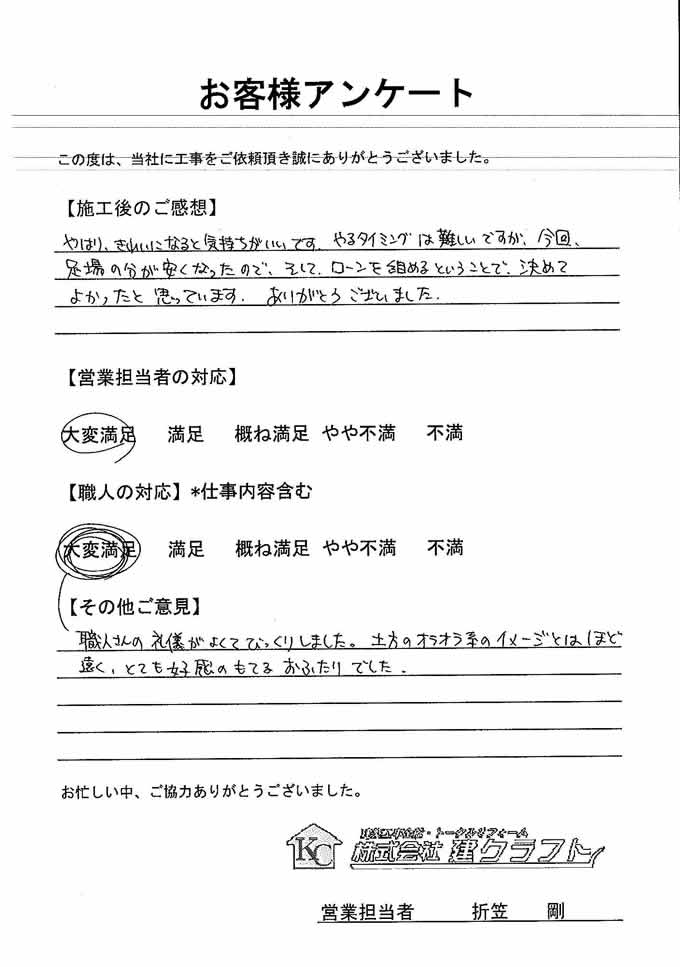 お客様アンケート
この度は、当社に工事をご依頼頂き誠にありがとうございました。
【施工後のご感想】
やはり、きれいになると気持ちがいいです。やるタイミングは難しいですが、今回、
足場の分が安くなったので、そして、ローンを組めるということで、決めて
よかったと思っています。ありがとうございました。
【営業担当者の対応】
大変満足 満足 概ね満足 やや不満 不満
【職人の対応】*仕事内容含む
大変満足 満足 概ね満足 やや不満 不満
【その他ご意見】
職人さんの礼儀がよくてびっくりしました。土方のオラオラ系のイメージとはほど
遠く、とても好感のもてるおふたりでした。
お忙しい中、ご協力ありがとうございました。
・トータルリフォーム
KC 株式会社 建クラフト
営業担当者 折笠 剛